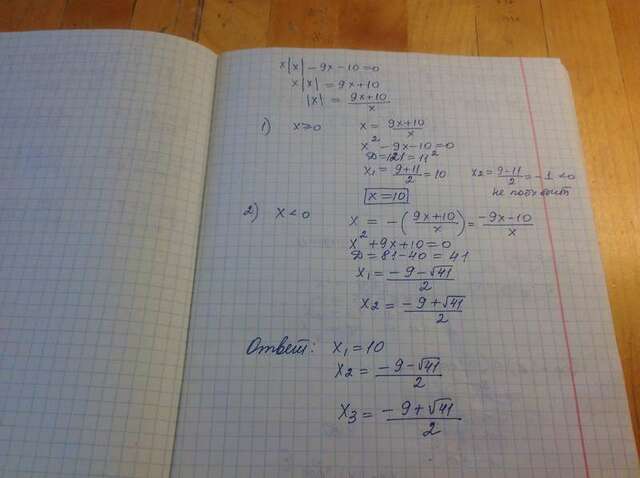 x|x| - 9x - 10 = 0
x|x| = 9x + 10
|x| = (9x+10)/x
1) x ≥ 0 x = (9x+10)/x
x² - 9x - 10 = 0
D = 121 = 11²
x₁ = (9+11)/2 = 10 x₂ = (9-11)/2 = -1 < 0
не подходит
x = 10
2) x < 0 x = -((9x+10)/x) = (-9x-10)/x
x² + 9x + 10 = 0
D = 81 - 40 = 41
x₁ = (-9-√41)/2
x₂ = (-9+√41)/2
Ответ: x₁ = 10
x₂ = (-9-√41)/2
x₃ = (-9+√41)/2